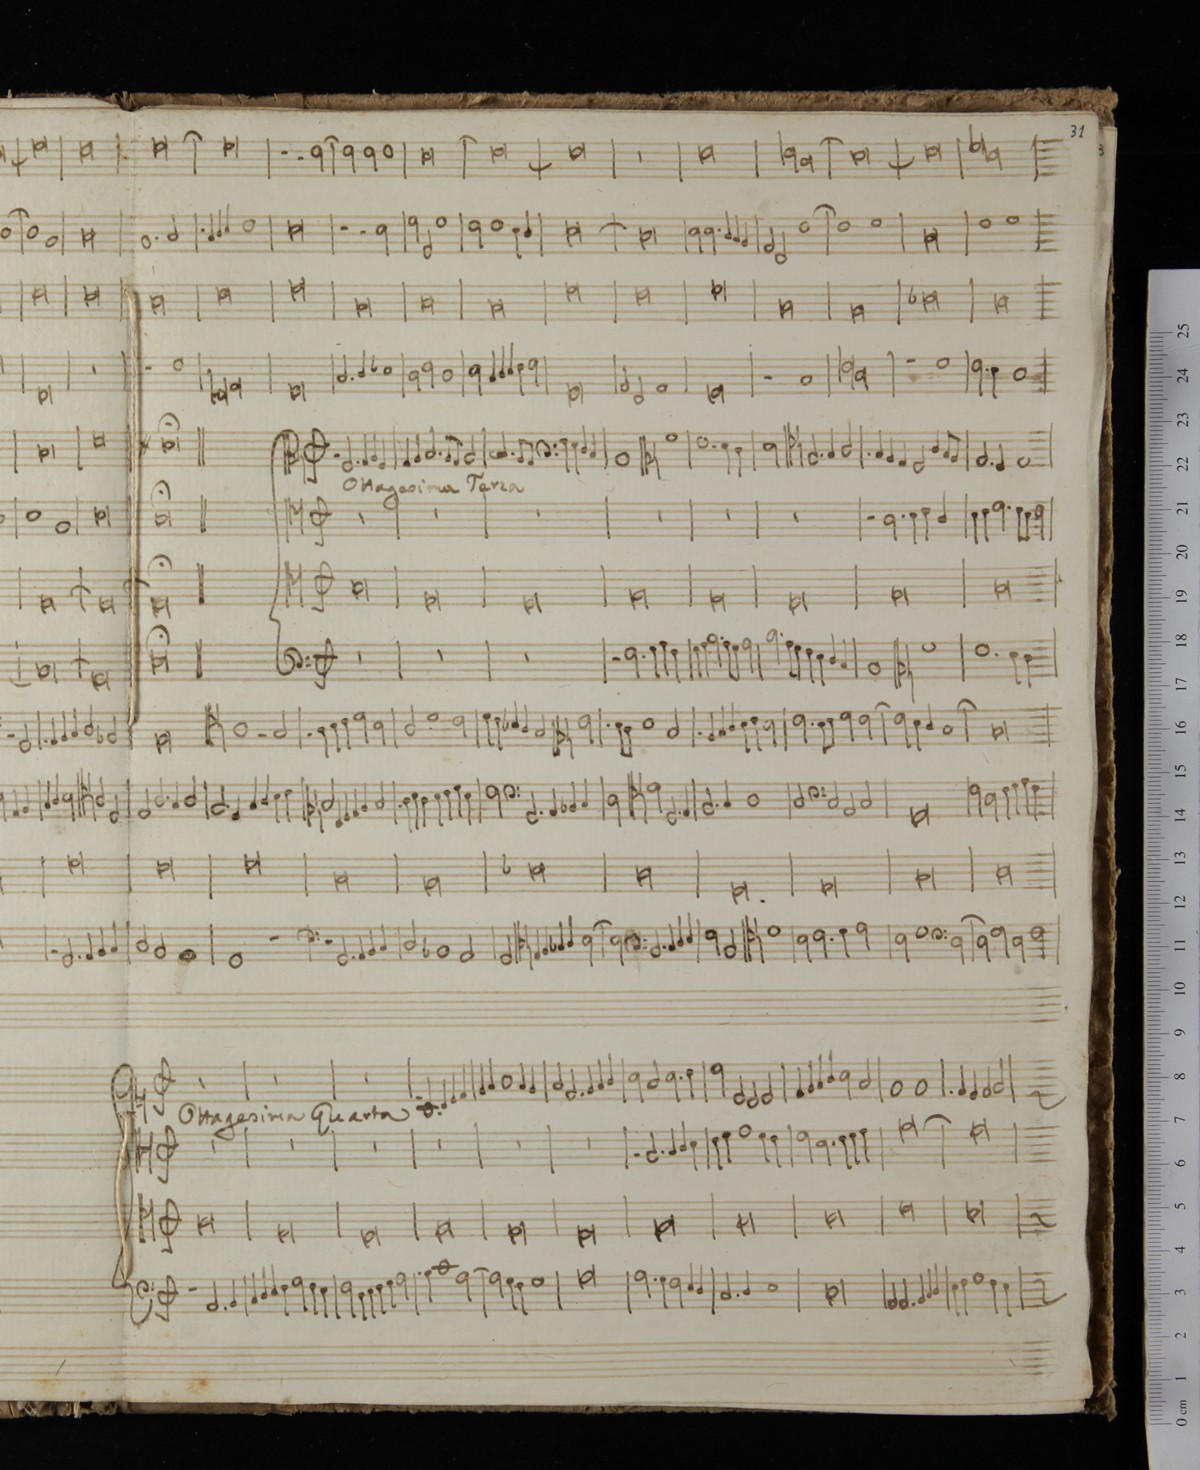 31
Ottagesima Terza
Ottagesima Quarta
25
24
23
22
21
20
19
18
17
16
15
14
13
12
11
10
9
8
7
6
5
4
3
2
1
0 cm